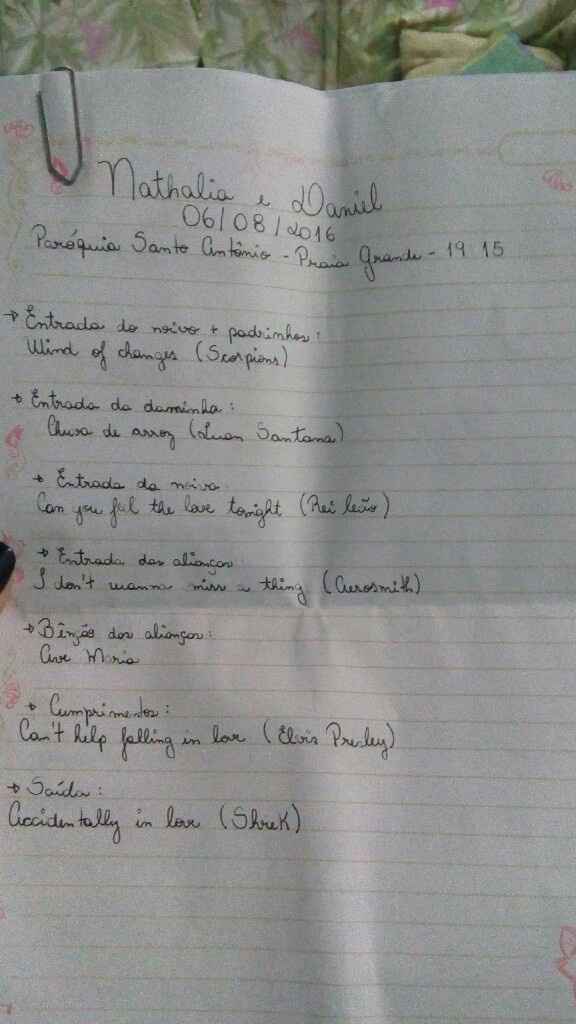 Nathalia e Daniel
06/08/2016
Paróquia Santo Antônio - Praia Grande - 19 15
→ Entrada do noivo + padrinhos:
Wind of changes (Scorpions)
→ Entrada da daminha:
Chuva de arroz (Luan Santana)
→ Entrada da noiva
Can you feel the love tonight (Rei leão)
→ Entrada das alianças
I don't wanna miss a thing (Aerosmith)
→ Bênção das alianças:
Ave Maria
→ Cumprimentos:
Can't help falling in love (Elvis Presley)
→ Saída:
Accidentally in love (Shrek)